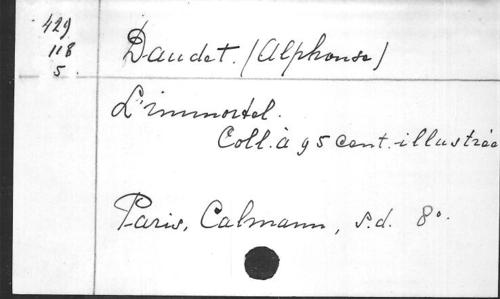 429
118
5.
Daudet. (Alphonse)
L'immortel.
Coll. à 95 cent. illustrée
Paris, Calmann, s.d. 8°.